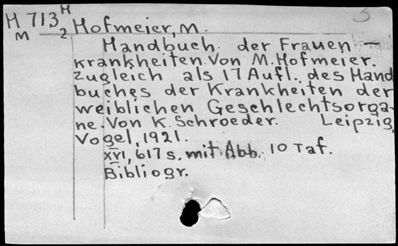 M 713 H Hofmeier, M.
M 2
Handbuch der Frauen-
krankheiten. Von M. Hofmeier.
Zugleich als 17 Aufl. des Hand
buches der Krankheiten der
weiblichen Geschlechtsorga-
ne. Von K. Schroeder. Leipzig,
Vogel, 1921.
XVI, 617 s. mit Abb. 10 Taf.
Bibliogr.